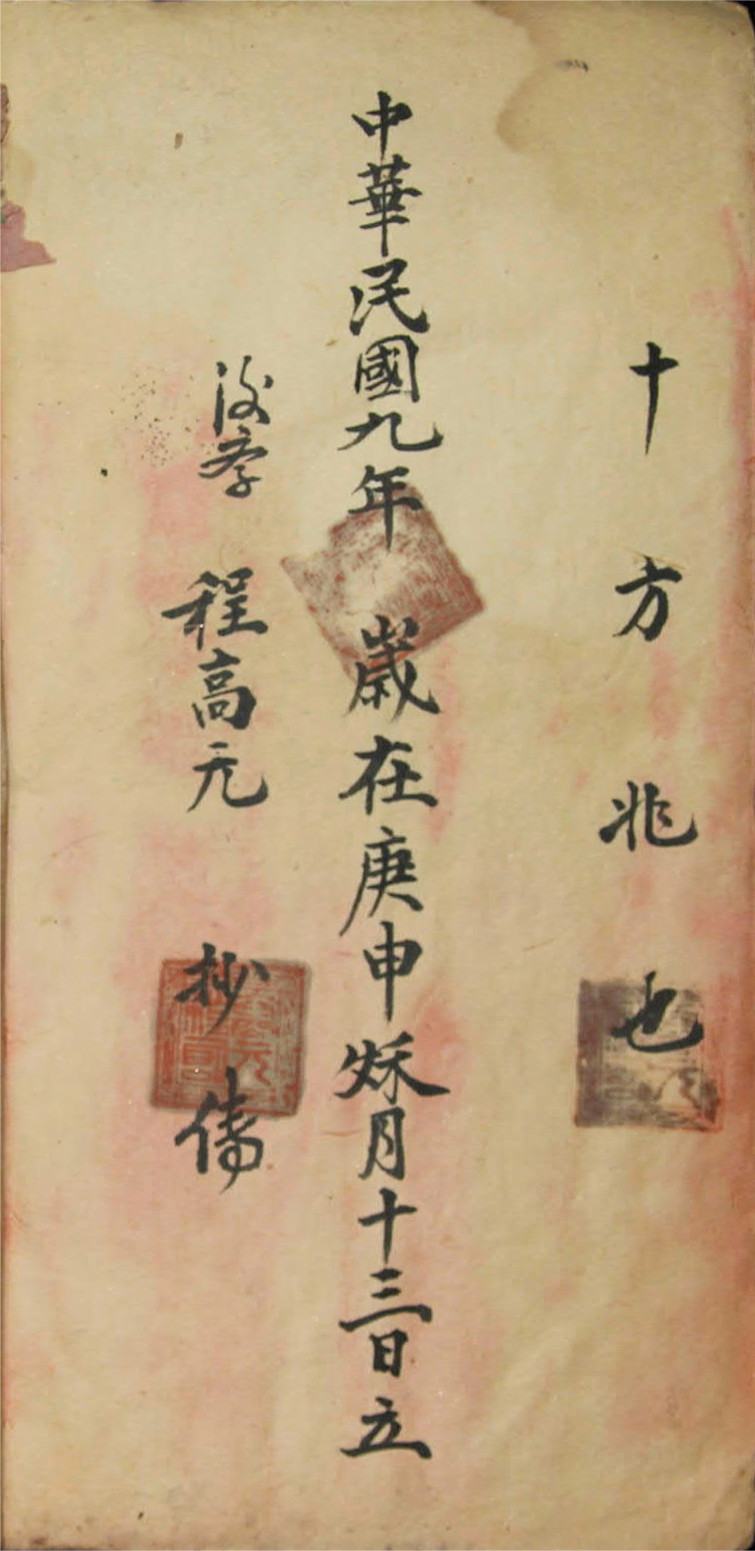 十方兆也
中華民國九年 歲在庚申秌月十三日立
後学 程高元 抄傳